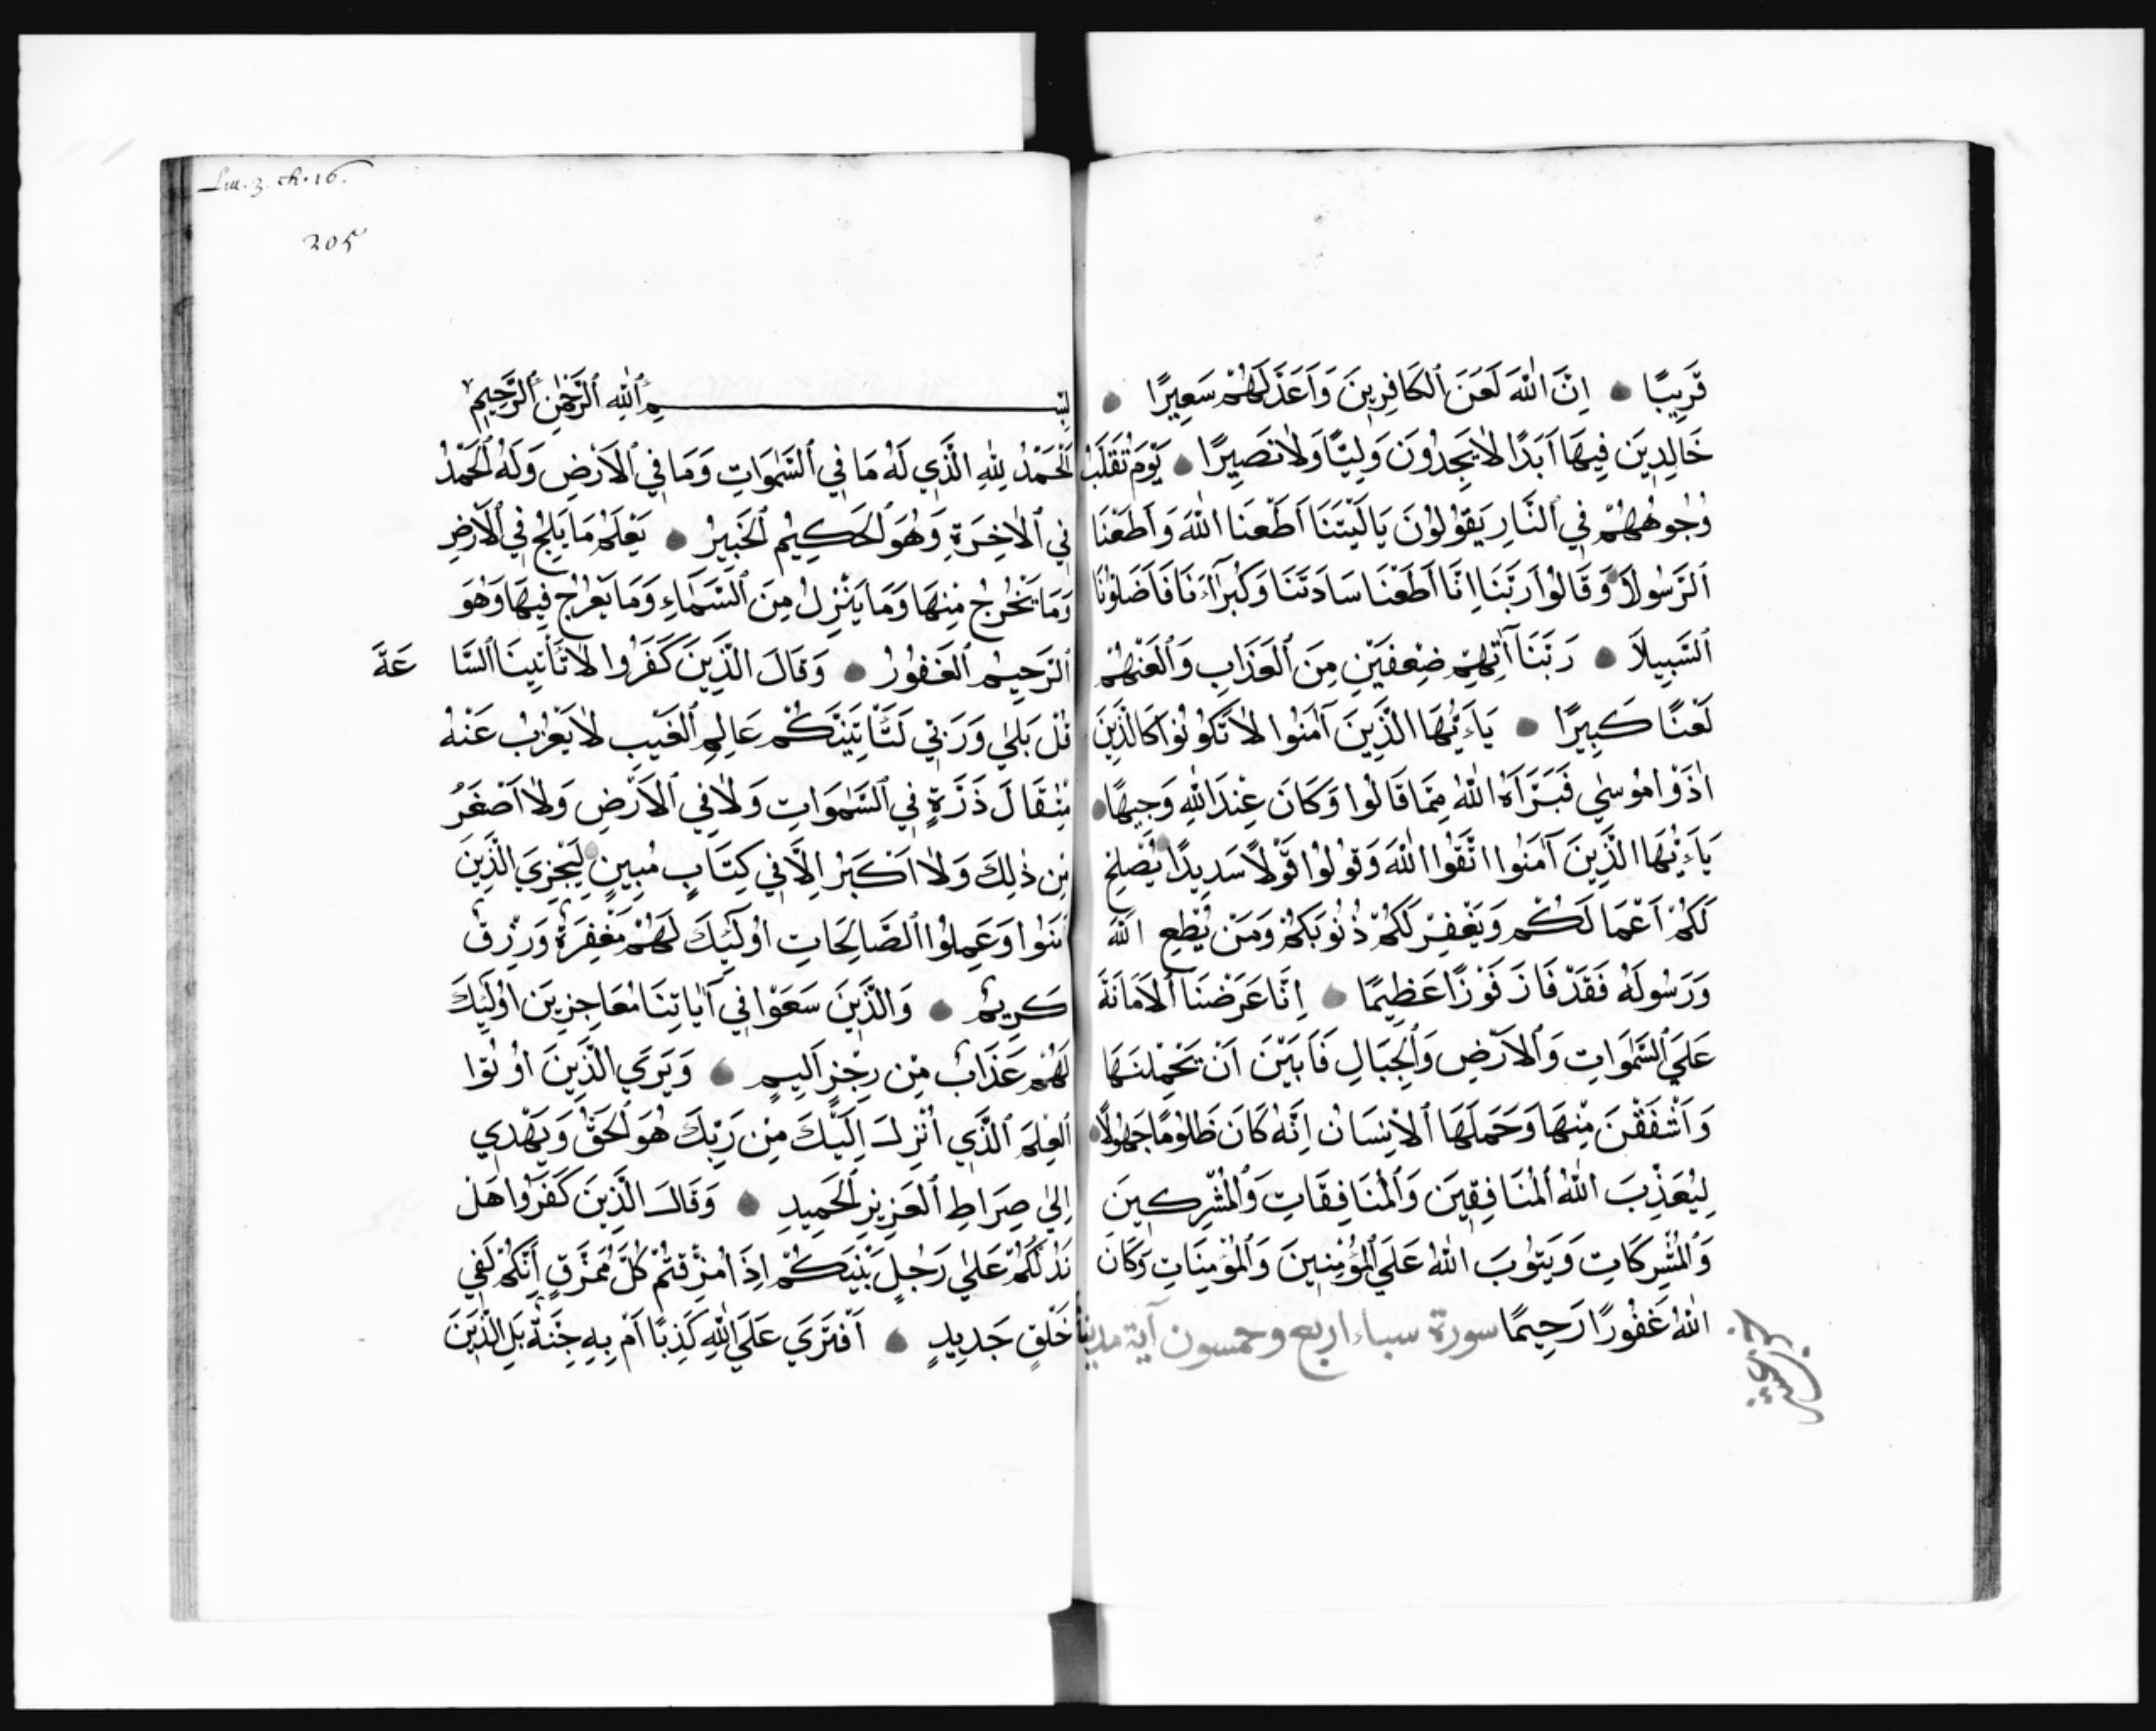 قَرِيبًا اِنَّ اللّٰهَ لَعَنَ ٱلكَافِرِينَ وَاَعَدَّ لَهُمْ سَعِيرًا
خَالِدِينَ فِيهَا اَبَدًا لَا يَجِدُونَ وَلِيًّا وَلَا نَصِيرًا يَوْمَ تُقَلَّبُ
وُجُوهُهُمْ فِي ٱلنَّارِ يَقُولُونَ يَا لَيْتَنَا اَطَعْنَا اللّٰهَ وَاَطَعْنَا
ٱلرَّسُولَا وَقَالُوا رَبَّنَا اِنَّا اَطَعْنَا سَادَتَنَا وَكُبَرَآءَنَا فَاَضَلُّونَا
ٱلسَّبِيلَا رَبَّنَا آتِهِمْ ضِعْفَيْنِ مِنَ ٱلعَذَابِ وَٱلعَنْهُمْ
لَعْنًا كَبِيرًا يَاءَيُّهَا الَّذِينَ آمَنُوا لَا تَكُونُوا كَالَّذِينَ
اٰذَوْا مُوسٰي فَبَرَّاَهُ اللّٰهُ مِمَّا قَالُوا وَكَانَ عِنْدَ اللّٰهِ وَجِيهًا
يَاءَيُّهَا الَّذِينَ آمَنُوا اتَّقُوا اللّٰهَ وَقُولُوا قَوْلًا سَدِيدًا يُصْلِحْ
لَكُمْ اَعْمَالَكُمْ وَيَغْفِرْ لَكُمْ ذُنُوبَكُمْ وَمَنْ يُطِعِ اللّٰهَ
وَرَسُولَهُ فَقَدْ فَازَ فَوْزًا عَظِيمًا اِنَّا عَرَضْنَا ٱلاَمَانَةَ
عَلَي ٱلسَّمٰوَاتِ وَٱلاَرْضِ وَٱلجِبَالِ فَاَبَيْنَ اَنْ يَحْمِلْنَهَا
وَاَشْفَقْنَ مِنْهَا وَحَمَلَهَا ٱلاِنْسَانُ اِنَّهُ كَانَ ظَلُومًا جَهُولًا
لِيُعَذِّبَ اللّٰهُ ٱلمُنَافِقِينَ وَٱلمُنَافِقَاتِ وَٱلمُشْرِكِينَ
وَٱلمُشْرِكَاتِ وَيَتُوبَ اللّٰهُ عَلَي ٱلمُؤْمِنِينَ وَٱلمُؤْمِنَاتِ وَكَانَ
اللّٰهُ غَفُورًا رَحِيمًا سورة سباء اربع وخمسون آية
Lin. 3. ch. 16.
205
بِسْمِ ٱللّٰهِ ٱلرَّحْمٰنِ ٱلرَّحِيمِ
اَلْحَمْدُ لِلّٰهِ الَّذِي لَهُ مَا فِي ٱلسَّمٰوَاتِ وَمَا فِي ٱلاَرْضِ وَلَهُ ٱلحَمْدُ
فِي ٱلاٰخِرَةِ وَهُوَ ٱلحَكِيمُ ٱلخَبِيرُ يَعْلَمُ مَا يَلِجُ فِي ٱلاَرْضِ
وَمَا يَخْرُجُ مِنْهَا وَمَا يَنْزِلُ مِنَ ٱلسَّمَاءِ وَمَا يَعْرُجُ فِيهَا وَهُوَ
ٱلرَّحِيمُ ٱلغَفُورُ وَقَالَ الَّذِينَ كَفَرُوا لَا تَأْتِينَا ٱلسَّا عَةَ
قُلْ بَلٰي وَرَبِّي لَتَأْتِيَنَّكُمْ عَالِمِ ٱلغَيْبِ لَا يَعْزُبُ عَنْهُ
مِثْقَالَ ذَرَّةٍ فِي ٱلسَّمٰوَاتِ وَلَا فِي ٱلاَرْضِ وَلَا اَصْغَرُ
مِن ذٰلِكَ وَلَا اَكْبَرُ اِلَّا فِي كِتَابٍ مُبِينٍ لِيَجْزِيَ الَّذِينَ
اٰمَنُوا وَعَمِلُوا ٱلصَّالِحَاتِ اُولٰئِكَ لَهُمْ مَغْفِرَةٌ وَرِزْقٌ
كَرِيمٌ وَالَّذِينَ سَعَوْا فِي آيَاتِنَا مُعَاجِزِينَ اُولٰئِكَ
لَهُمْ عَذَابٌ مِنْ رِجْزٍ اَلِيمٍ وَيَرَي الَّذِينَ اُوتُوا
ٱلعِلْمَ ٱلَّذِي اُنْزِلَ اِلَيْكَ مِنْ رَبِّكَ هُوَ ٱلحَقُّ وَيَهْدِي
اِلٰي صِرَاطِ ٱلعَزِيزِ ٱلحَمِيدِ وَقَالَ الَّذِينَ كَفَرُوا هَلْ
نَدُلُّكُمْ عَلٰي رَجُلٍ يُنَبِّئُكُمْ اِذَا مُزِّقْتُمْ كُلَّ مُمَزَّقٍ اِنَّكُمْ لَفِي
خَلْقٍ جَدِيدٍ اَفْتَرَي عَلَي اللّٰهِ كَذِبًا اَمْ بِهِ جِنَّةٌ بَلِ الَّذِينَ